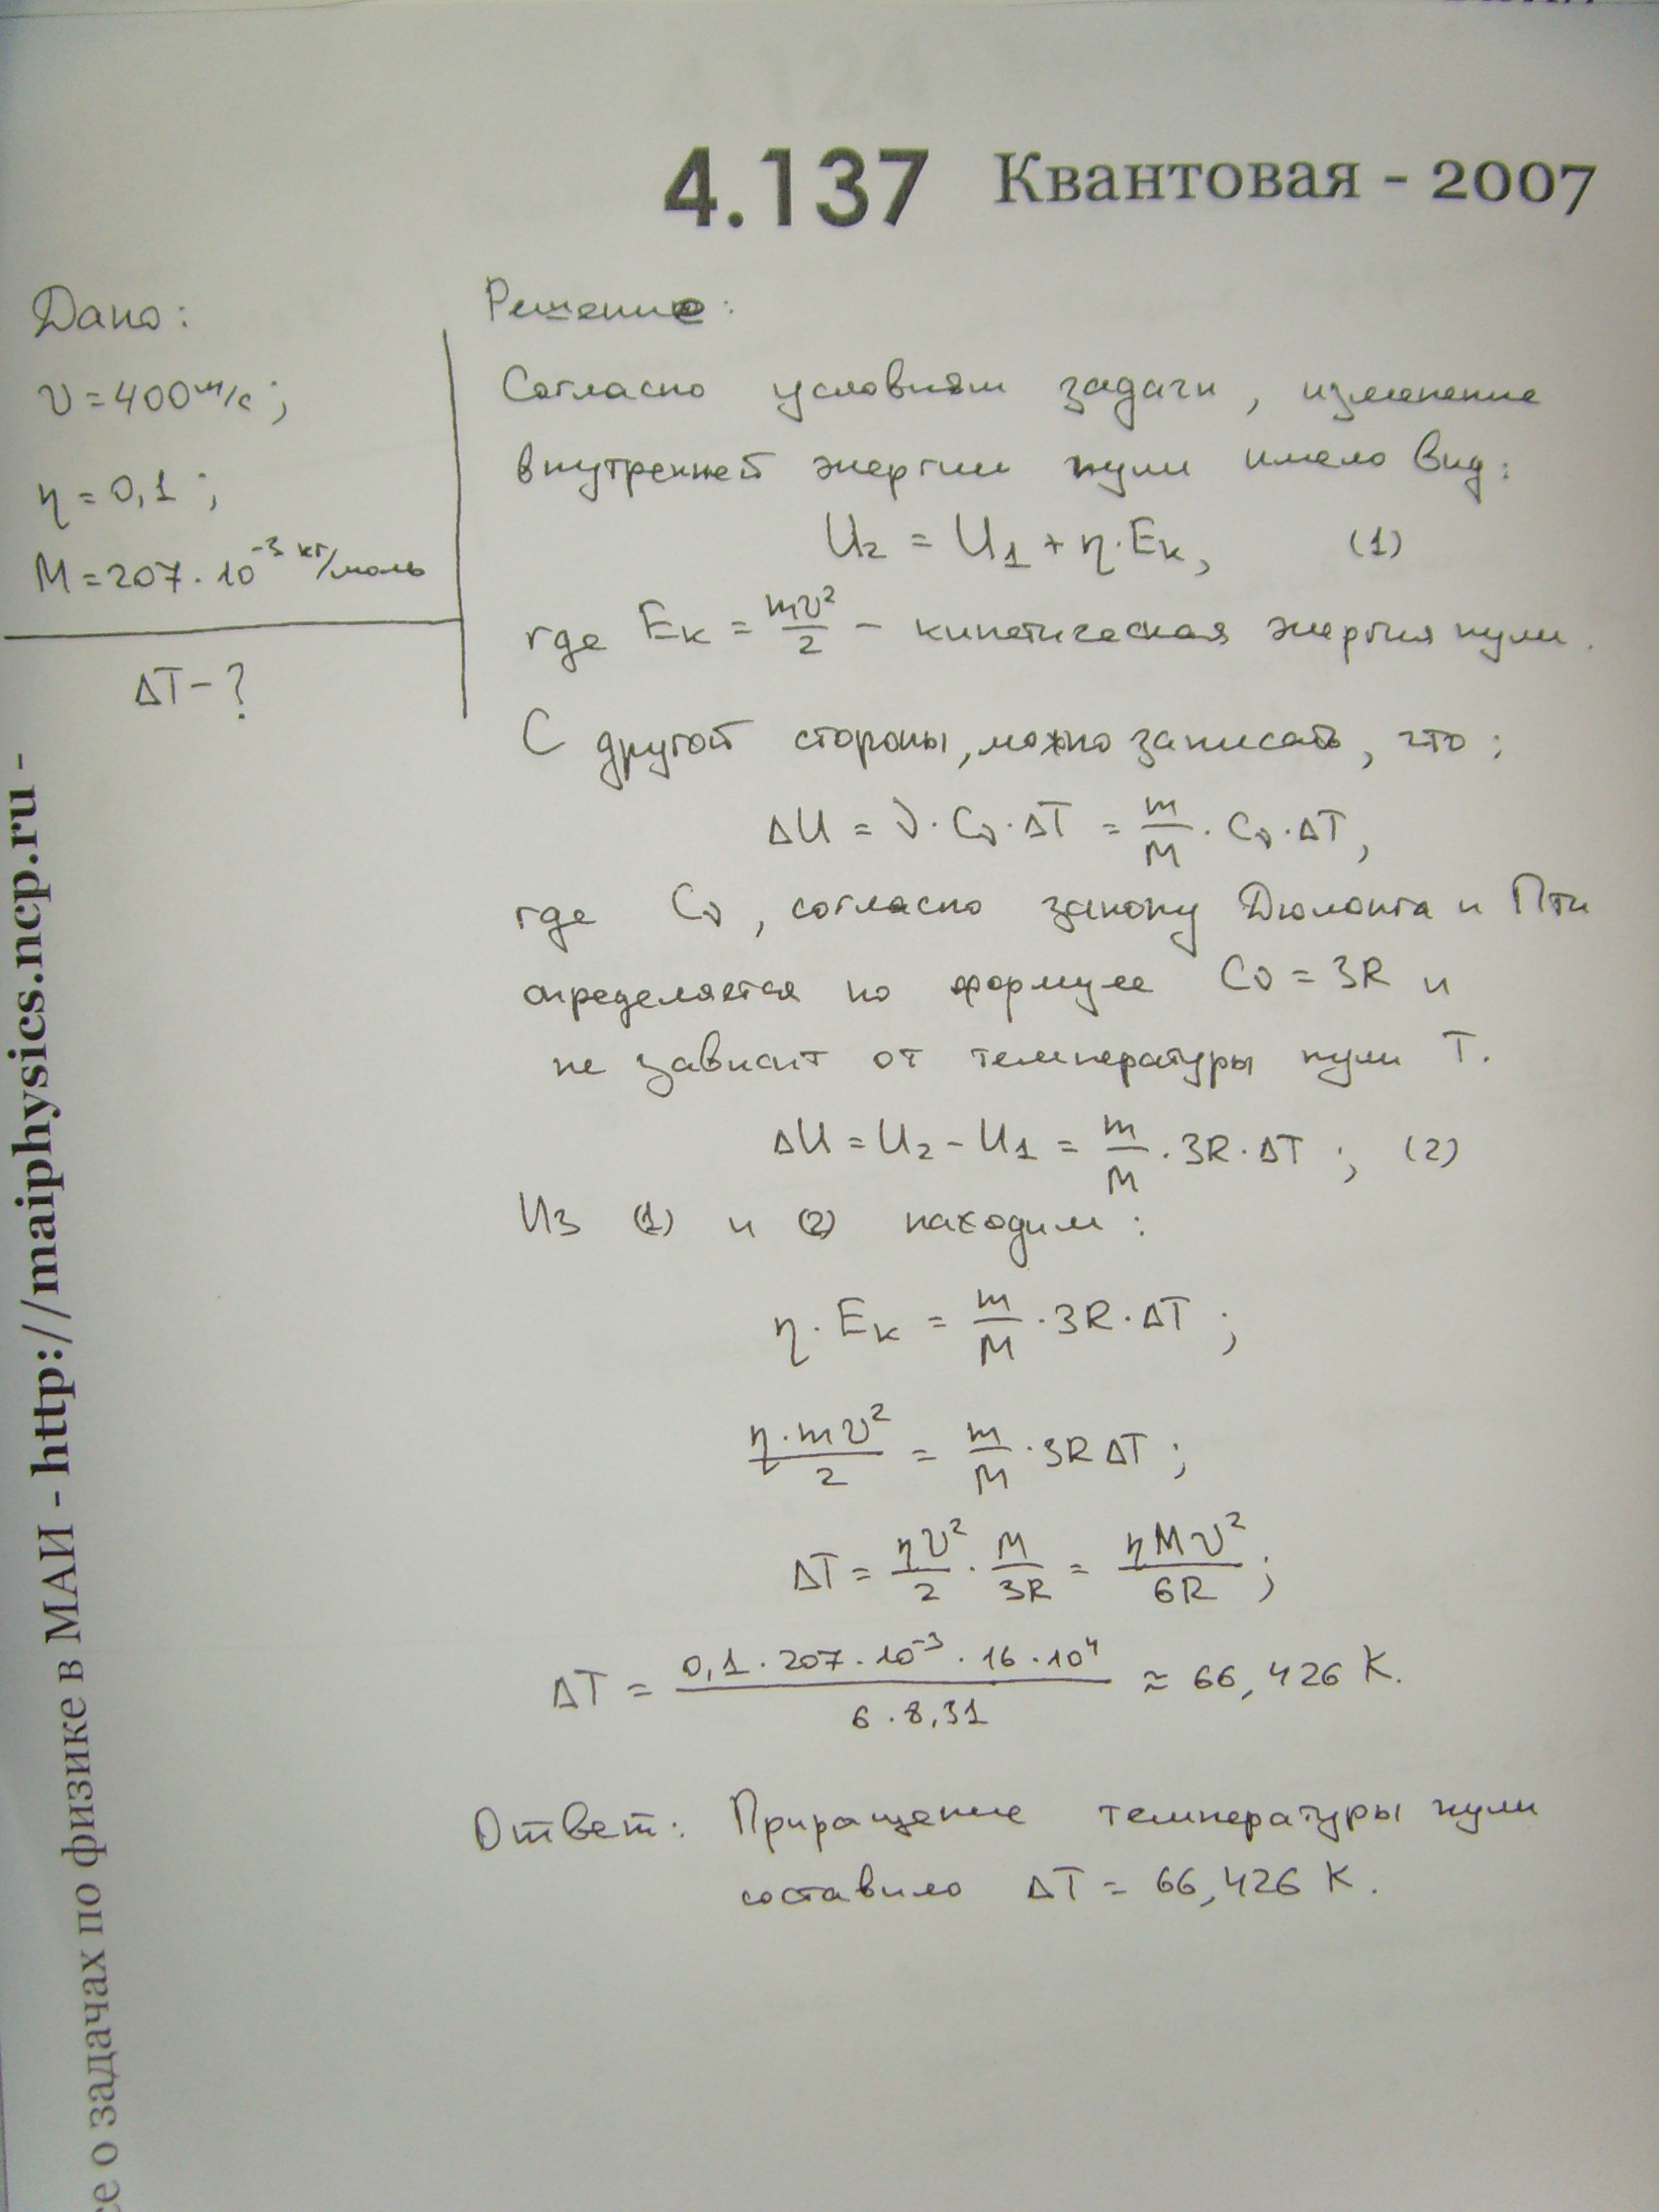 4.137 Квантовая - 2007
Дано:
υ = 400 м/с;
η = 0,1;
M = 207 · 10⁻³ кг/моль
ΔT - ?
Решение:
Согласно условиям задачи, изменение
внутренней энергии пули имело вид:
U₂ = U₁ + η · Eк, (1)
где Eк = mυ²/2 - кинетическая энергия пули.
С другой стороны, можно записать, что:
ΔU = ν · Cυ · ΔT = m/M · Cυ · ΔT,
где Cυ, согласно закону Дюлонга и Пти
определяется по формуле Cυ = 3R и
не зависит от температуры пули T.
ΔU = U₂ - U₁ = m/M · 3R · ΔT; (2)
Из (1) и (2) находим:
η · Eк = m/M · 3R · ΔT;
η · mυ²/2 = m/M · 3RΔT;
ΔT = ηυ²/2 · M/3R = ηMυ²/6R;
ΔT = 0,1 · 207 · 10⁻³ · 16 · 10⁴ / 6 · 8,31 ≈ 66,426 K.
Ответ: Приращение температуры пули
составило ΔT = 66,426 K.
о задачах по физике в МАИ - http://maiphysics.ncp.ru -